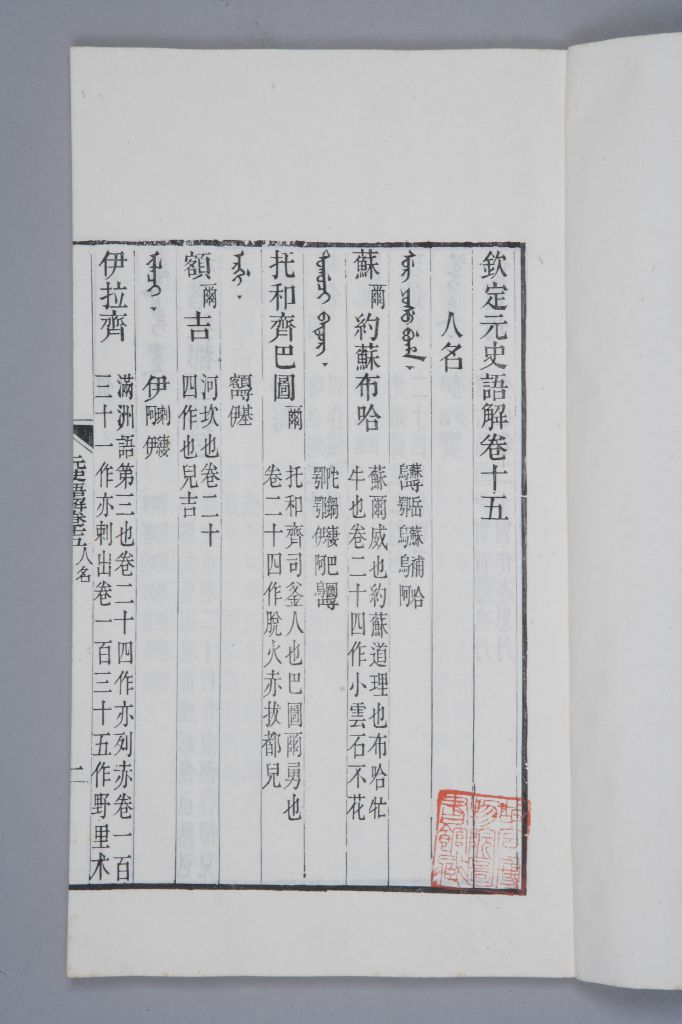 欽定元史語解卷十五
人名
岳蘇補哈
烏鄂烏烏阿
蘇爾約蘇布哈
蘇爾威也約蘇道理也布哈牤
牛也卷二十四作小雲石不花
托和齊巴圖爾
托和齊司釜人也巴圖爾勇也
卷二十四作脫火赤拔都兒
額爾吉
河坎也卷二十
四作也兒吉
ᡳᠯᠠᠴᡳ
伊拉齊
滿洲語第三也卷二十四作亦列赤卷一百
三十一作亦剌出卷一百三十五作野里术
元史語解卷十五 人名 二